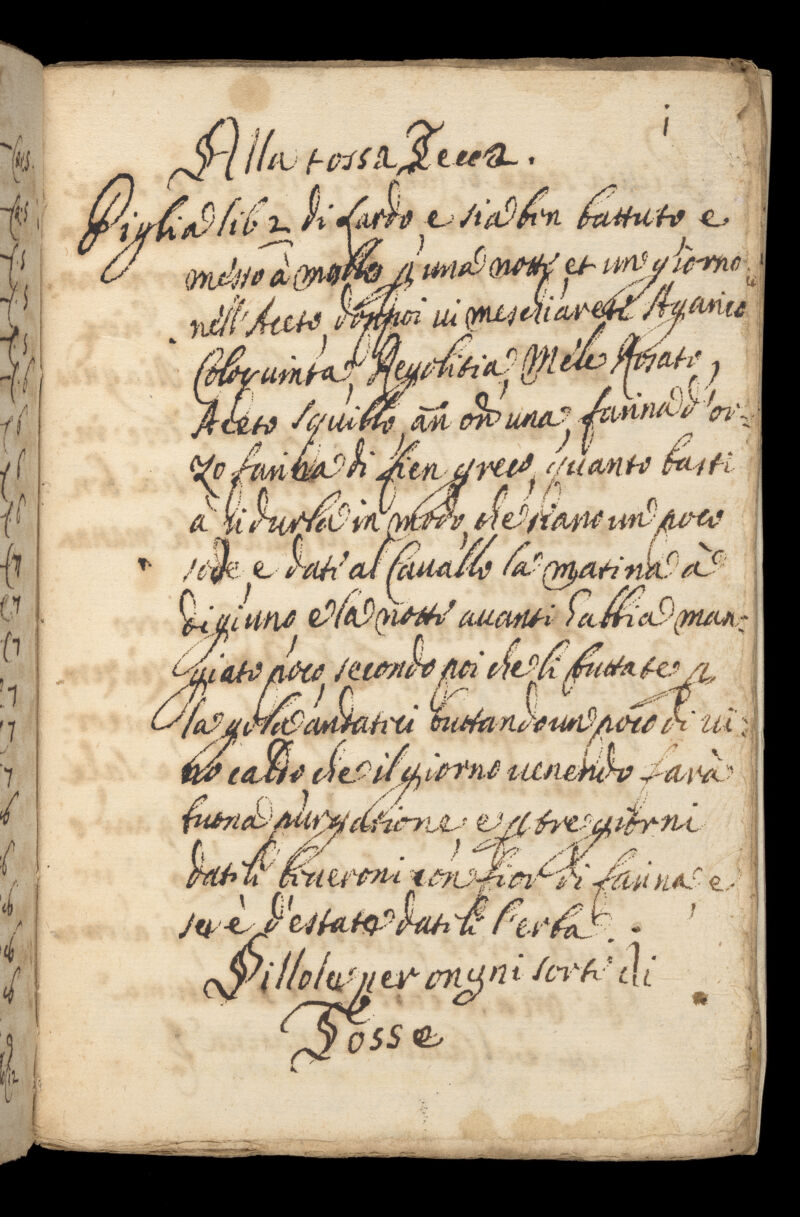 i
Alla tossa Secca.
Piglia lib 2 di Lardo, e sia ben battuto e
messo à mollo p una notte et un giorno
nell'Aceto, doppoi ui meschiarete Agarico
Coloquinta, Regolitia, Mele Rosato,
Aceto Squillo, añ on̄ una, farina d'or=
zo farina di fien greco, quanto basti
à ridurla in modo, che siano un poco
sode, e dati al Cauallo la matina à
digiuno, e la notte auanti habbia man=
giato poco, secondo poi che li buttate p
la gola andatici buttando un poco di ui=
no caldo che il giorno uenendo farà
buona purgatione, e p tre giorni
datili beueroni con fior di farina, e
se è d'estate datili l'erba.
Pillole per ongni sorte di
Tosse